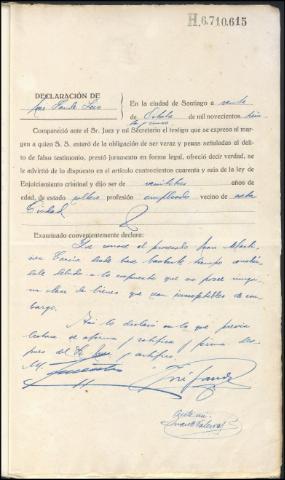 H.6.710.615
DECLARACIÓN DE
En la ciudad de Santiago a veinte
de Octubre de mil novecientos trein
ta y cinco
Compareció ante el Sr. Juez y mi Secretario el testigo que se expresa al mar-
gen a quien S. S. enteró de la obligación de ser veraz y penas señaladas al delito
de falso testimonio, prestó juramento en forma legal, ofreció decir verdad, se
le advirtió de lo dispuesto en el artículo cuatrocientos cuarenta y seis de la ley de
Enjuiciamiento criminal y dijo ser de años de
edad, de estado soltero profesión empleado vecino de esta
Ciudad
Examinado convenientemente declara:
Que conoce al procesado Juan
García desde hace bastante tiempo
que no posee ningu-
na clase de bienes que sean susceptibles de em-
bargo.
Así lo declaró en lo que previa
lectura se afirma y ratifica y firma des-
pues del Sr. Juez y certifico.
José
Ante mi